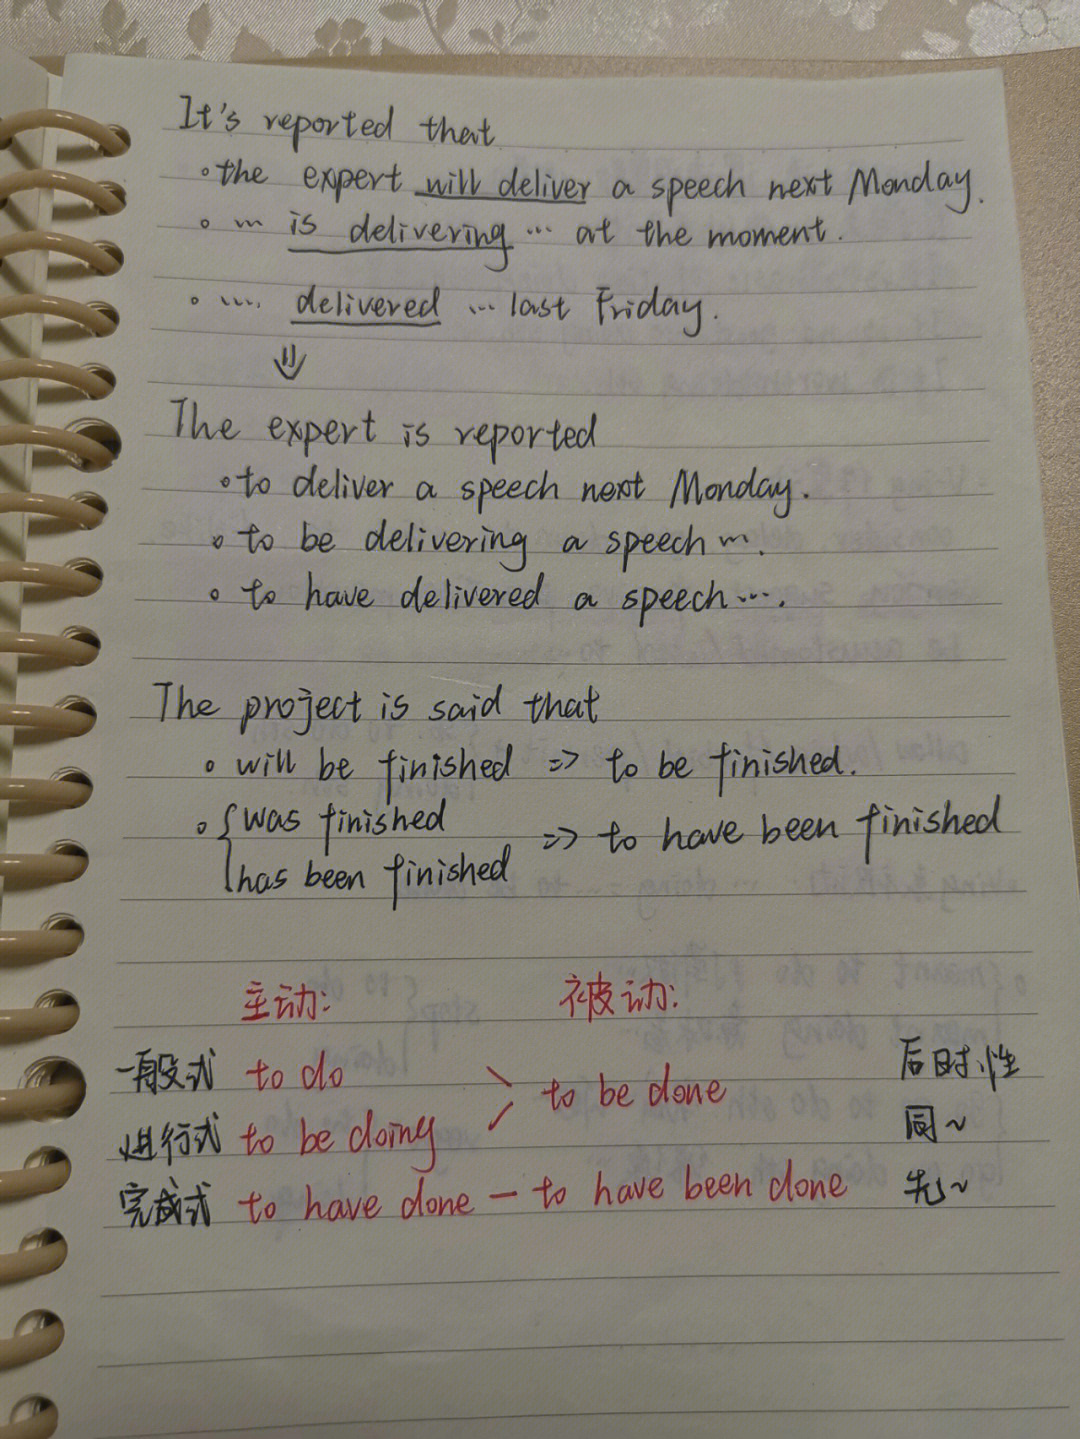 It's reported that
◦ the expert will deliver a speech next Monday.
◦ ... is delivering ... at the moment.
◦ .... delivered ... last Friday.
⇓
The expert is reported
◦ to deliver a speech next Monday.
◦ to be delivering a speech ....
◦ to have delivered a speech ....
The project is said that
◦ will be finished => to be finished.
◦ { was finished
has been finished => to have been finished
主动: 被动:
一般式 to do > to be done 后时性
进行式 to be doing 同~
完成式 to have done — to have been done 先~